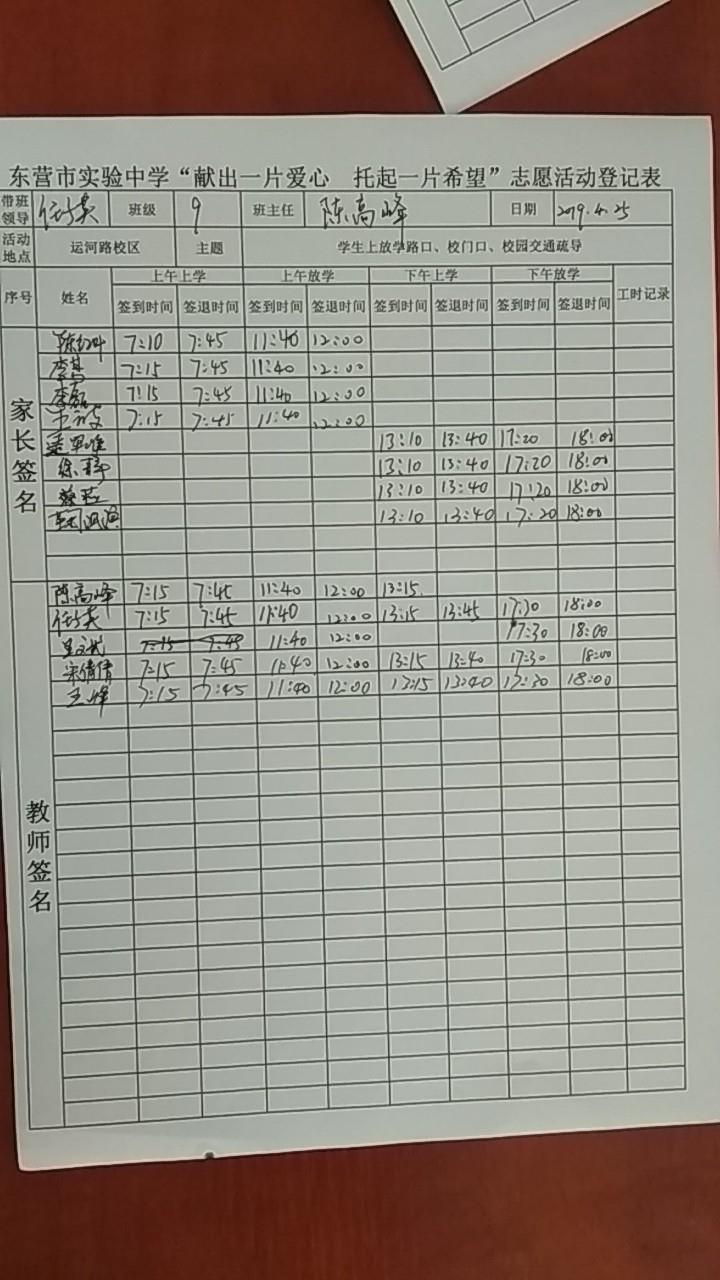 东营市实验中学“献出一片爱心 托起一片希望”志愿活动登记表
带班领导 班级 9 班主任 陈高峰 日期 2019.4.25
活动地点 运河路校区 主题 学生上放学路口、校门口、校园交通疏导
序号 姓名 上午上学 上午放学 下午上学 下午放学 工时记录
签到时间 签退时间 签到时间 签退时间 签到时间 签退时间 签到时间 签退时间
家长签名
7:10 7:45 11:40 12:00
7:15 7:45 11:40 12:00
李磊 7:15 7:45 11:40 12:00
7:15 7:45 11:40 12:00
13:10 13:40 17:20 18:00
13:10 13:40 17:20 18:00
13:10 13:40 17:20 18:00
13:10 13:40 17:20 18:00
教师签名
陈高峰 7:15 7:45 11:40 12:00 13:15
7:15 7:45 11:40 12:00 13:15 13:45 17:30 18:00
7:15 7:45 11:40 12:00 17:30 18:00
宋倩倩 7:15 7:45 11:40 12:00 13:15 13:40 17:30 18:00
王峰 7:15 7:45 11:40 12:00 13:15 13:40 17:30 18:00